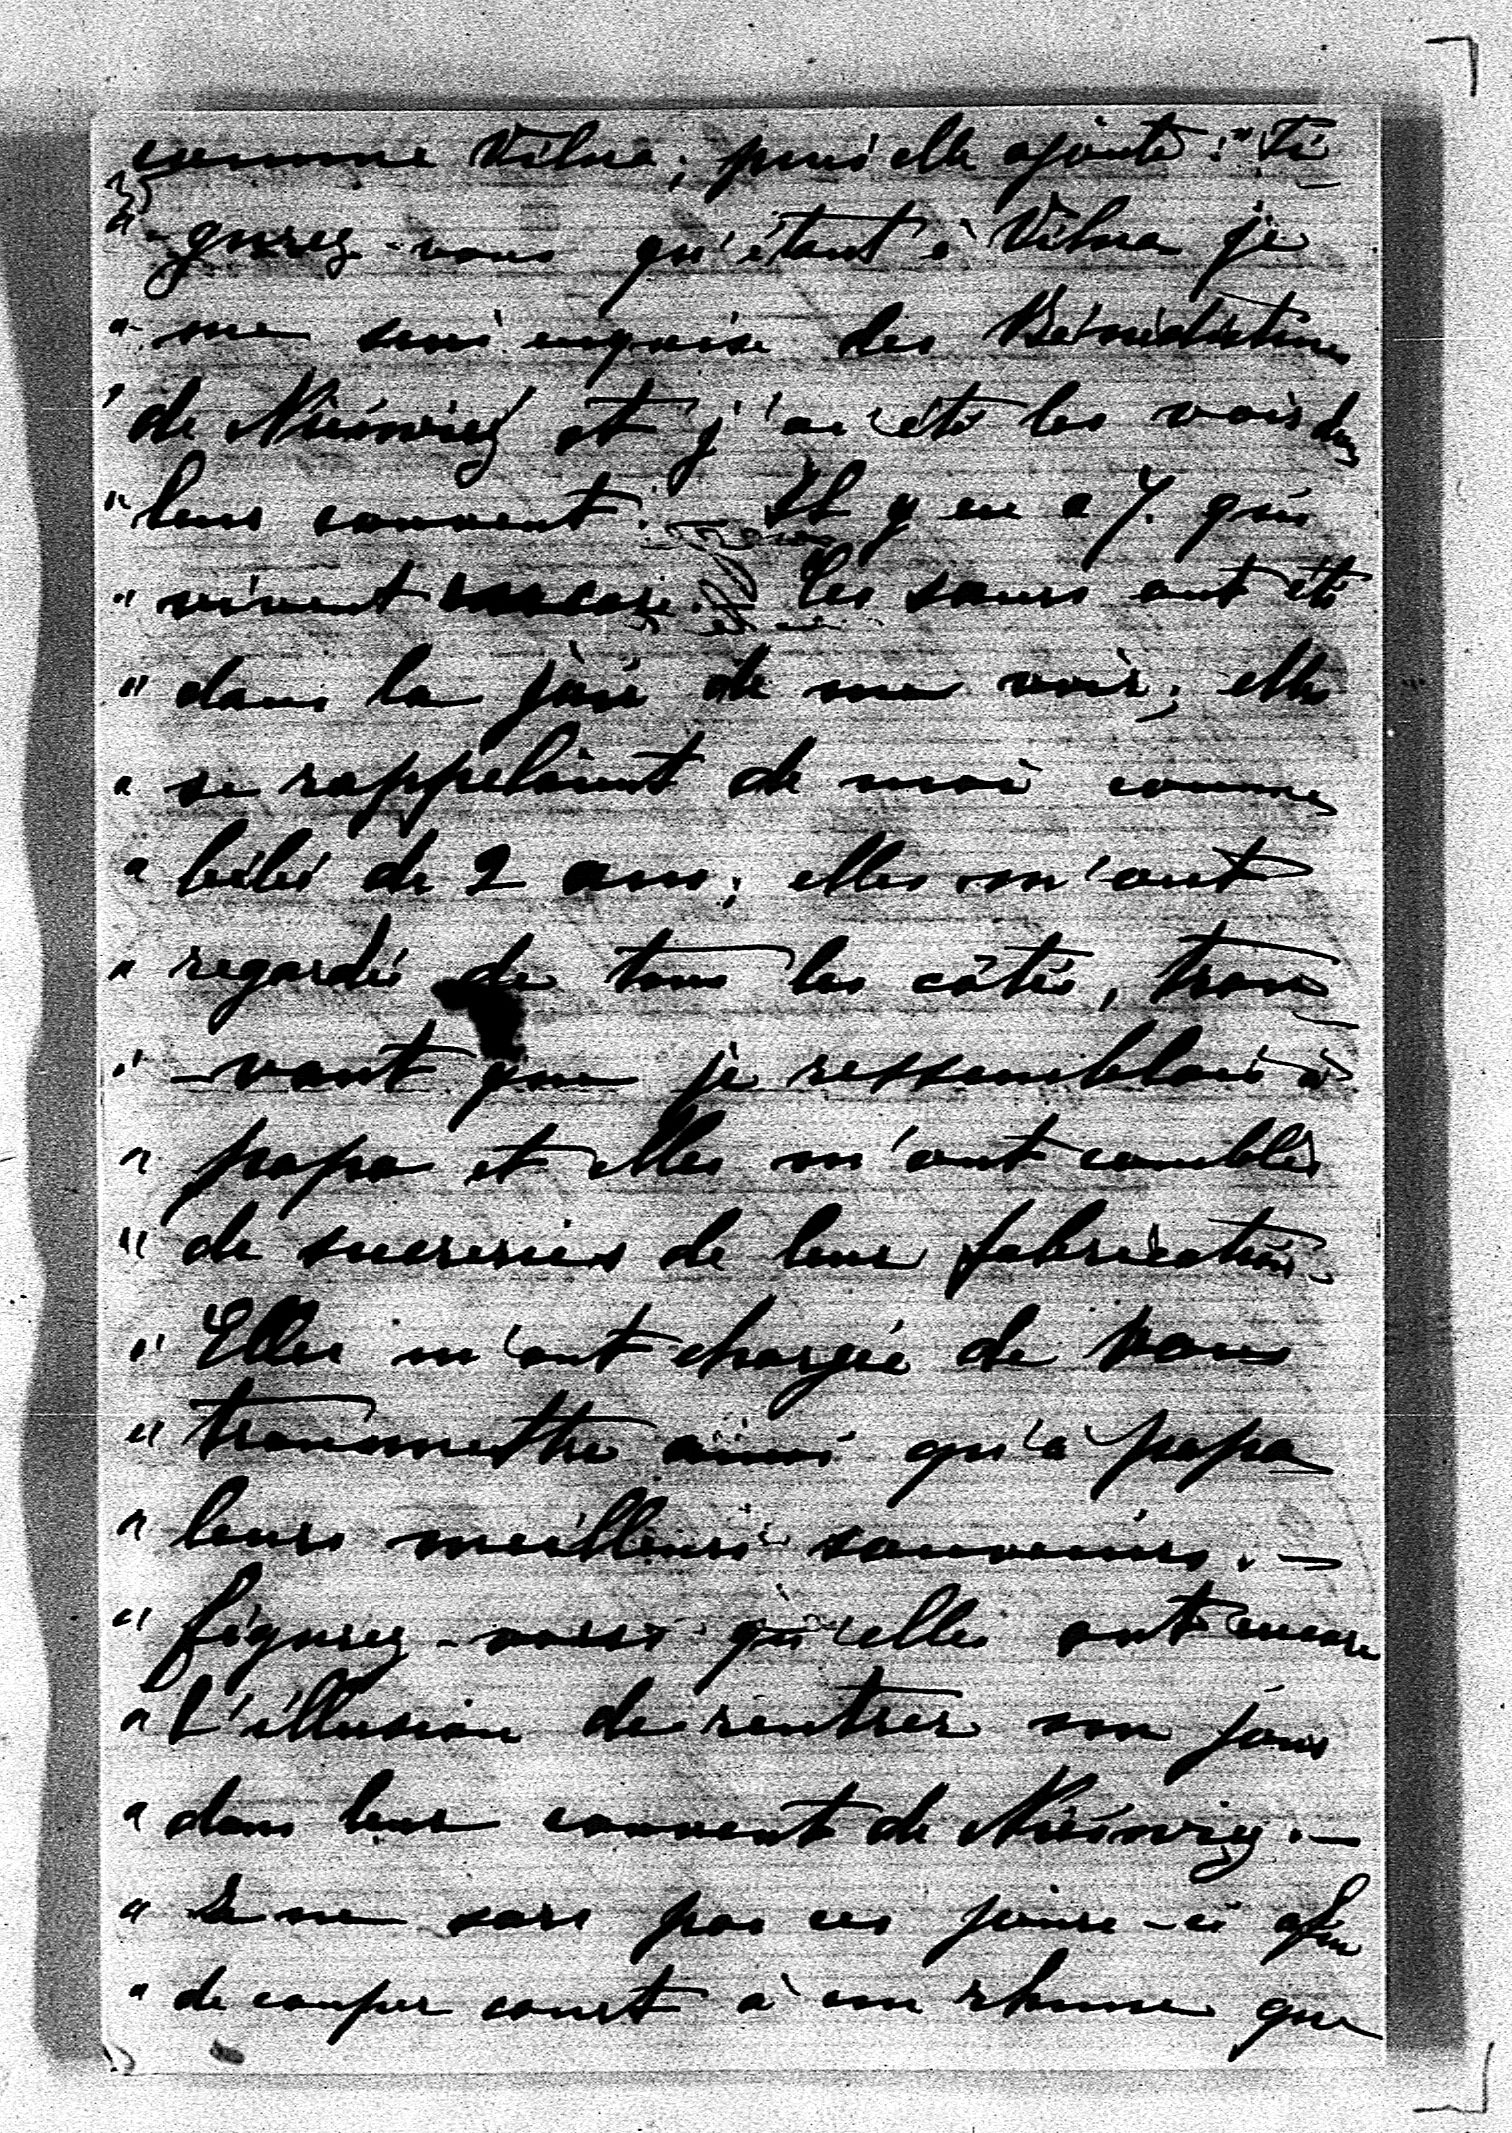 comme Vilna; puis elle ajoute: "Fi
3)
" -gurez-vous qu'étant à Vilna je
" me suis enquise des Bénédictines
" de Nieświez et j'ai été les voir dans
" leur couvent. — Il y en a 7. qui
" vivent encore. — Les sœurs ont été
" dans la joie de me voir; elles
" se rappelaient de moi comme
" bébé de 2 ans; elles m'ont
" regardée de tous les côtés, trou
" -vant que je ressemblais à
" papa et elles m'ont comblée
" de sucreries de leur fabrication.
" Elles m'ont chargée de Vous
" transmettre ainsi qu'à papa
" leurs meilleurs souvenirs. —
" figurez-vous qu'elles ont encore
" l'illusion de rentrer un jour
" dans leur couvent de Nieświez. —
" Je ne sors pas ces jours-ci afin
" de couper court à un rhume que